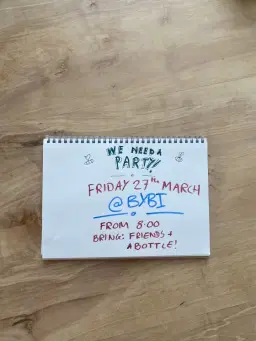 WE NEED A
PARTY!!
FRIDAY 27th MARCH
@BYBI
FROM 8:00
BRING: FRIENDS +
A BOTTLE!